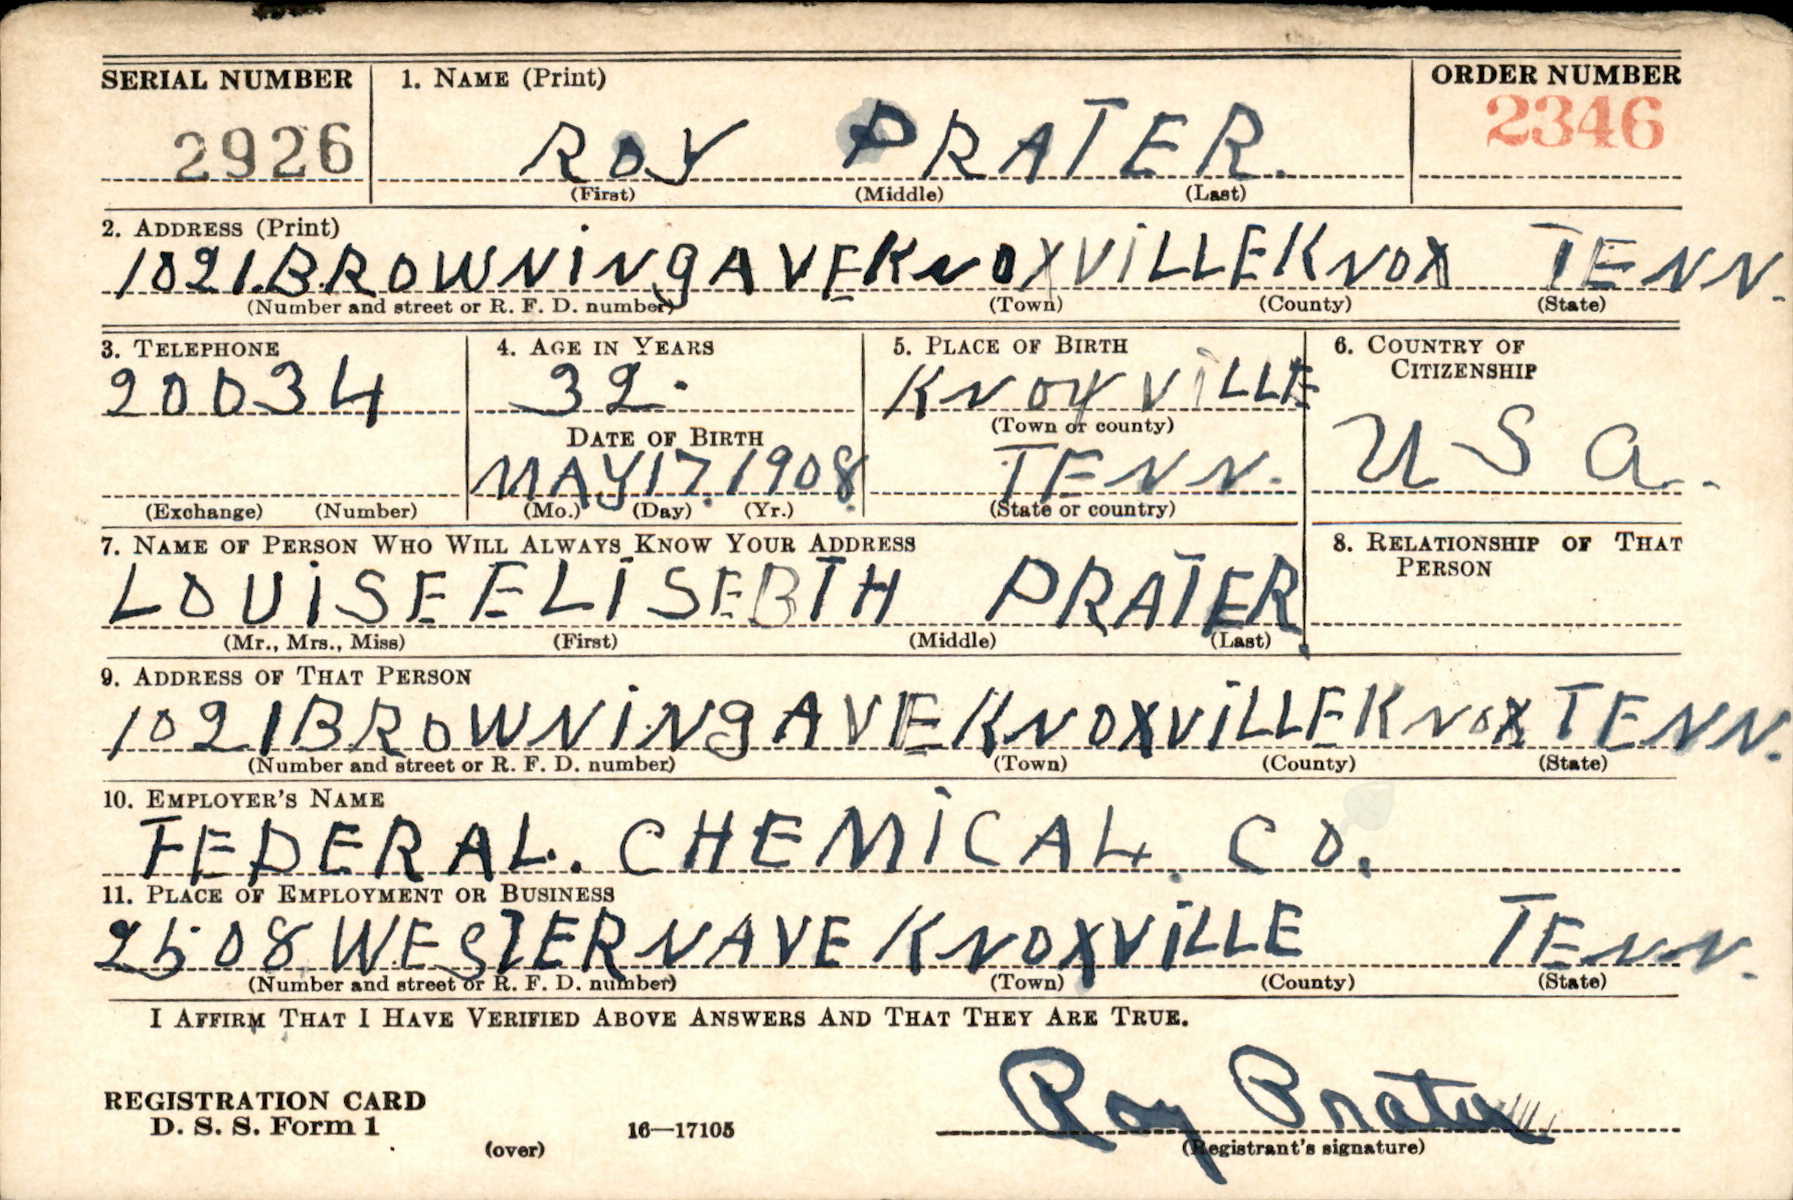 SERIAL NUMBER 1. NAME (Print) ORDER NUMBER
2926 ROY PRATER. 2346
(First) (Middle) (Last)
2. ADDRESS (Print)
1021.BROWNiNg AVE KNOXViLLE KNOX TENN.
(Number and street or R. F. D. number) (Town) (County) (State)
3. TELEPHONE 4. AGE IN YEARS 5. PLACE OF BIRTH 6. COUNTRY OF CITIZENSHIP
20034 32. KNOXViLLE
DATE OF BIRTH (Town or county)
MAY 17. 1908 TENN. U S a.
(Exchange) (Number) (Mo.) (Day) (Yr.) (State or country)
7. NAME OF PERSON WHO WILL ALWAYS KNOW YOUR ADDRESS 8. RELATIONSHIP OF THAT PERSON
LOUiSE ELiSEBTH PRATER
(Mr., Mrs., Miss) (First) (Middle) (Last)
9. ADDRESS OF THAT PERSON
1021 BROWNiNg AVE KNOXViLLE KNOX TENN.
(Number and street or R. F. D. number) (Town) (County) (State)
10. EMPLOYER'S NAME
FEDERAL. CHEMiCAL. CO.
11. PLACE OF EMPLOYMENT OR BUSINESS
2508 WESTERN AVE KNOXViLLE TENN.
(Number and street or R. F. D. number) (Town) (County) (State)
I AFFIRM THAT I HAVE VERIFIED ABOVE ANSWERS AND THAT THEY ARE TRUE.
REGISTRATION CARD
D. S. S. Form 1 16—17105 Roy Prater
(over) (Registrant's signature)